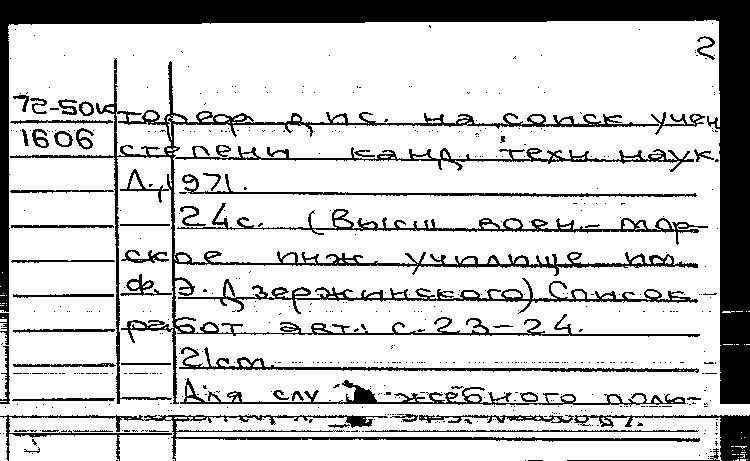 2
72-50к
1606
тореф дис. на соиск. учен
степени канд. техн. наук.
Л., 1971.
24с. (Высш воен-мор-
ское инж. училище им.
Ф.Э. Дзержинского). Список
работ авт.: с.23-24.
21cm.
Для служебного поль-